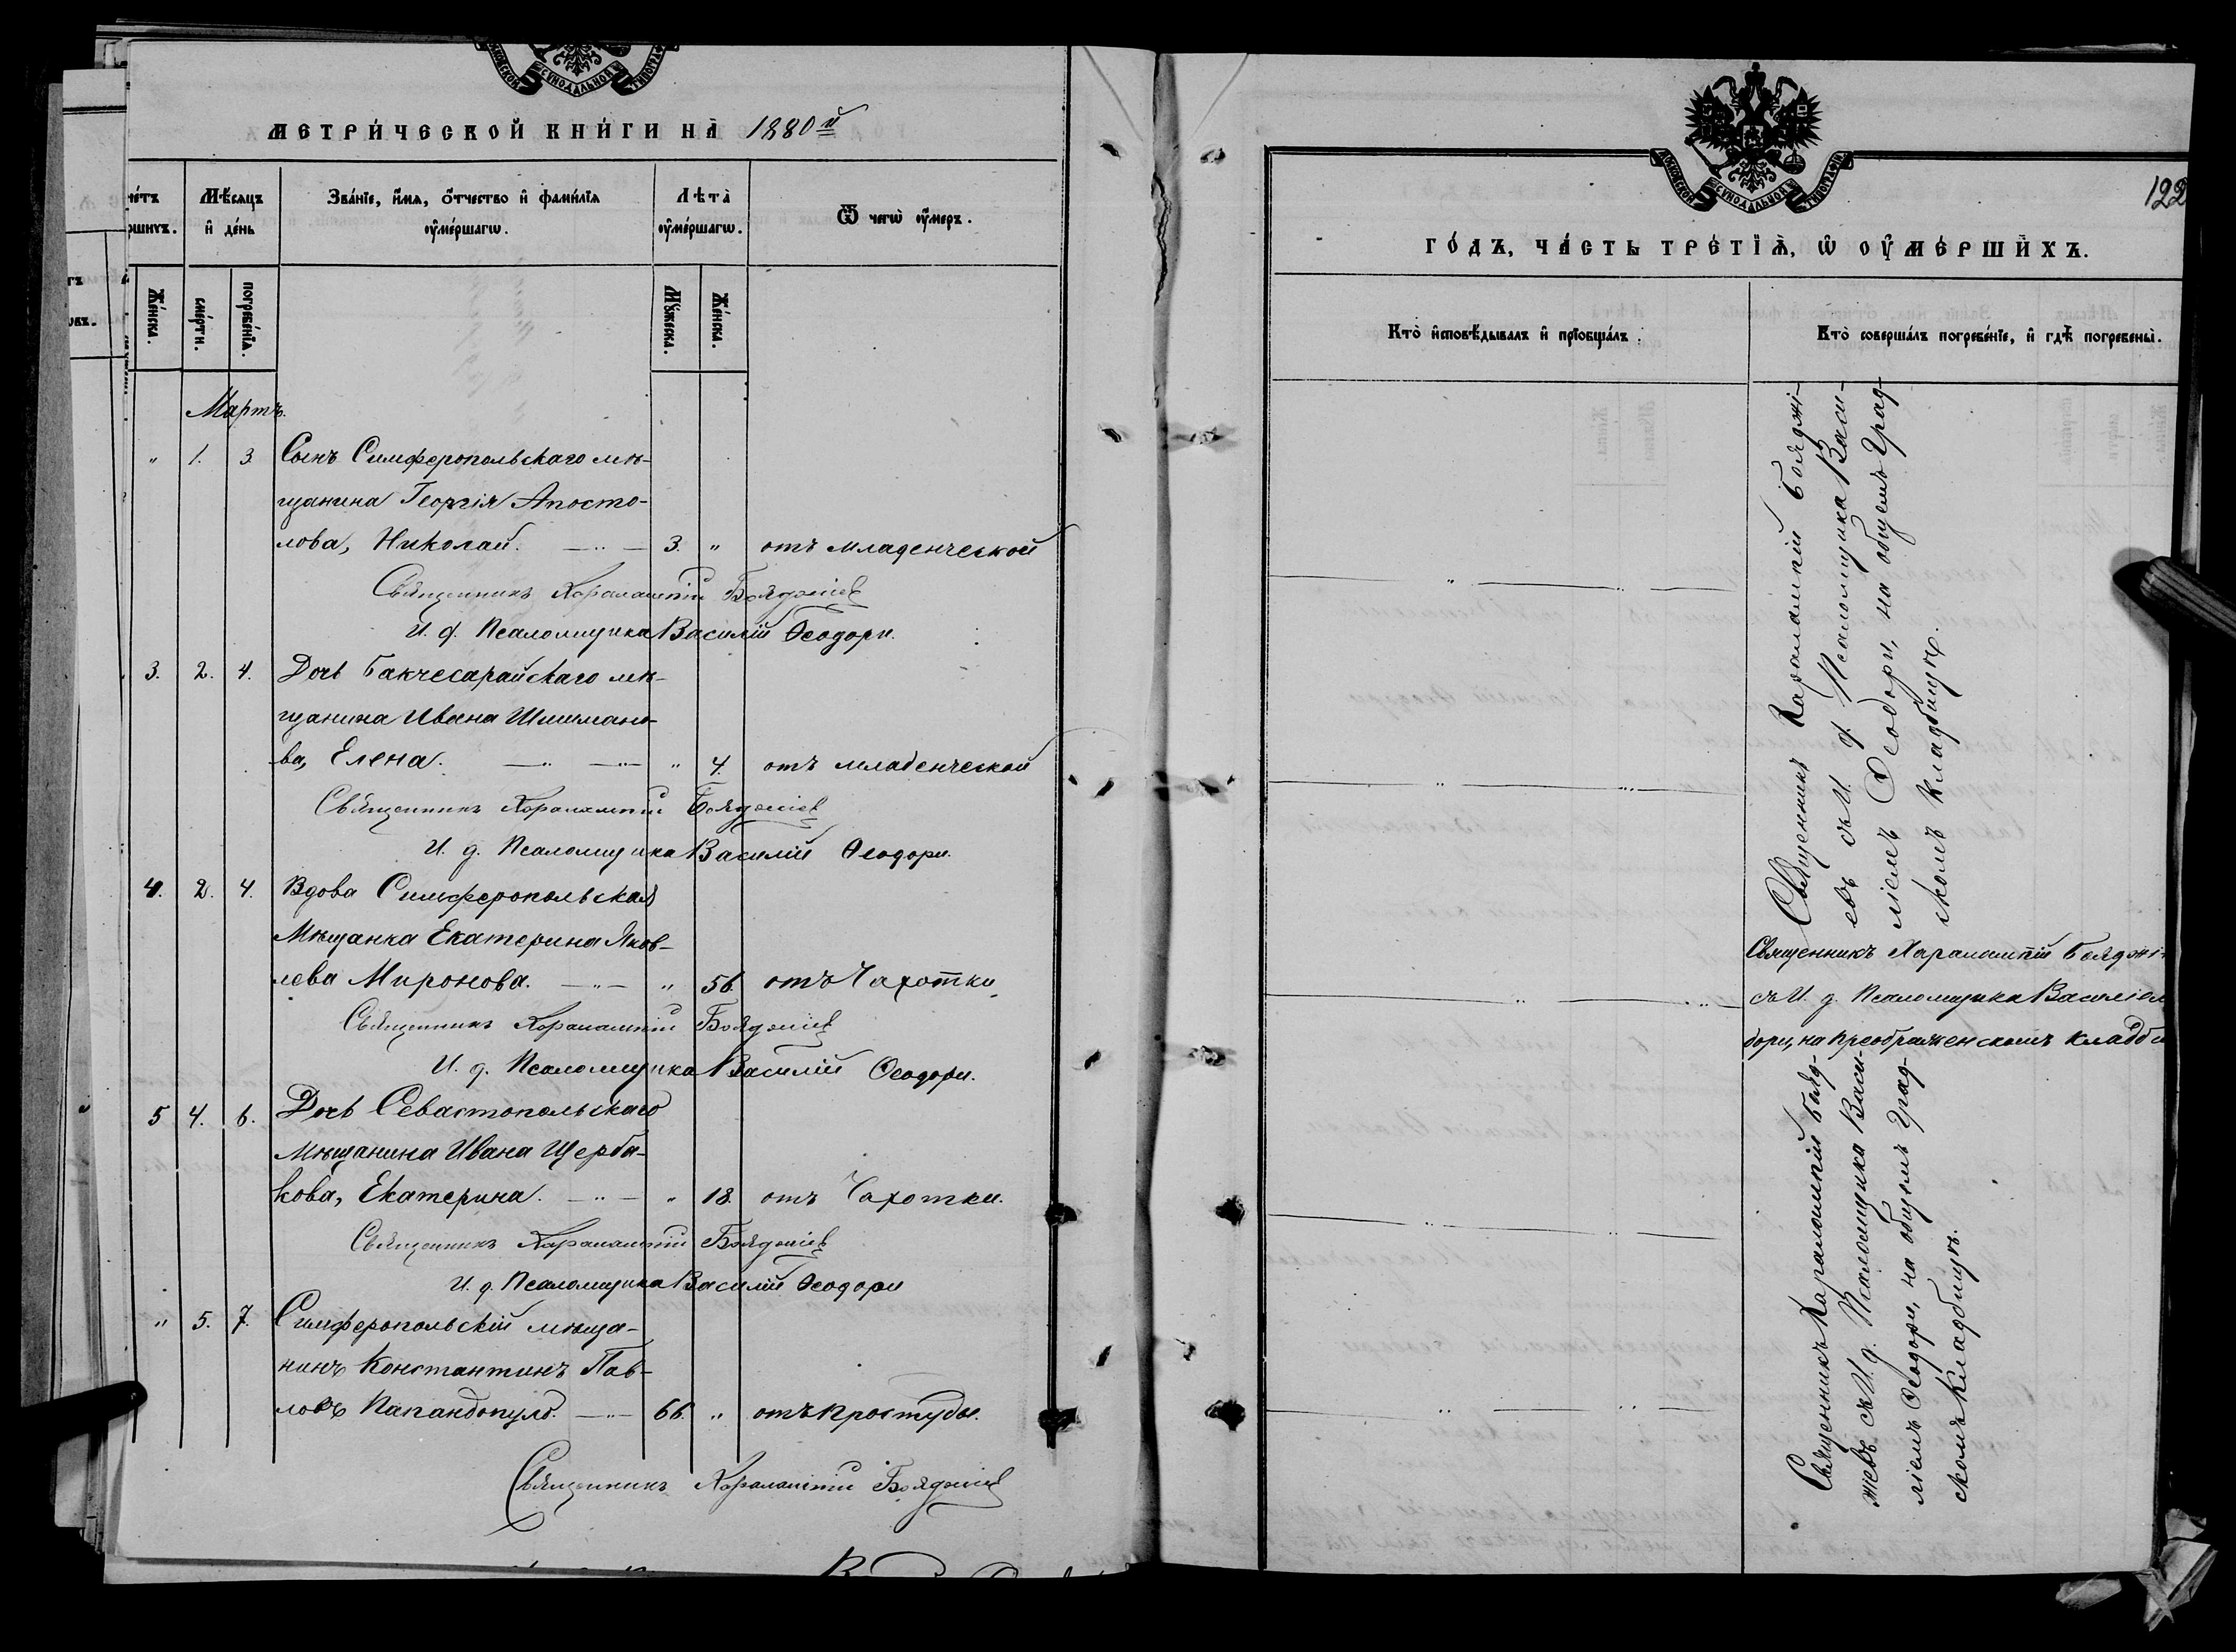 МОСКОВСКОЙ СѴНОДАЛЬНОЙ ТИПОГРАФІИ
МЕТРИ́ЧЕСКОЙ КНИ́ГИ НА̀ 1880й
Мѣ́сяцъ и҆ де́нь
Зва́нїе, и҆́мѧ, ѻ҆́тчество и҆ фами́лїѧ оу҆ме́ршагѡ.
Лѣта̀ оу҆ме́ршагѡ.
Ѿ чегѡ̀ оу҆́меръ.
Же́нска.
сме́рти.
погребе́нїѧ.
Мꙋ́жеска.
Же́нска.
Мартъ.
„ 1. 3. Сынъ Симферопольскаго мѣ-
щанина Георгія Апосто-
лова, Николай. — „ — 3. „ отъ младенческой
Священникъ Харалампій Бояджіев
И. д. Псаломщика Василій Ѳеодори.
3. 2. 4. Дочь Бакчесарайскаго мѣ-
щанина Ивана Шишмано-
ва, Елена. — „ — „ — „ 4. отъ младенческой
Священникъ Харалампій Бояджіев
И. д. Псаломщика Василій Ѳеодори.
4. 2. 4. Вдова Симферопольская
Мѣщанка Екатерина Яков-
лева Миронова. — „ — „ 56. отъ Чахотки
Священникъ Харалампій Бояджіев
И. д. Псаломщика Василій Ѳеодори.
5 4. 6. Дочь Севастопольскаго
Мѣщанина Ивана Щерба-
кова, Екатерина. — „ — „ 18. отъ Чахотки.
Священникъ Харалампій Бояджіев
И. д. Псаломщика Василій Ѳеодори
„ 5. 7. Симферопольскій мѣща-
нинъ Константинъ Пав-
ловъ Папандопуло. — „ — 66. „ отъ простуды.
Священникъ Харалампій Бояджіев
МОСКОВСКОЙ СѴНОДАЛЬНОЙ ТИПОГРАФІИ
122
ГО́ДЪ, ЧА́СТЬ ТРЕ́ТЇѦ, Ѡ҆ ОУ҆МЕ́РШИХЪ.
Кто̀ и҆сповѣ́дывалъ и҆ прїѡбща́лъ.
Кто̀ соверша́лъ погребе́нїе, и҆ гдѣ̀ погребены̀.
Священникъ Харалампій Бояджі-
евъ съ И. д. Псаломщика Васи-
ліемъ Ѳеодори, на общемъ Град-
скомъ кладбищѣ.
Священникъ Харалампій Бояджі-
съ И. д. Псаломщика Василіем
дори, на Преображенскомъ кладби
Священникъ Харалампій Бояд-
жевъ съ И. д. Псаломщика Васи-
ліемъ Ѳеодори, на общемъ Град-
скомъ Кладбищѣ.